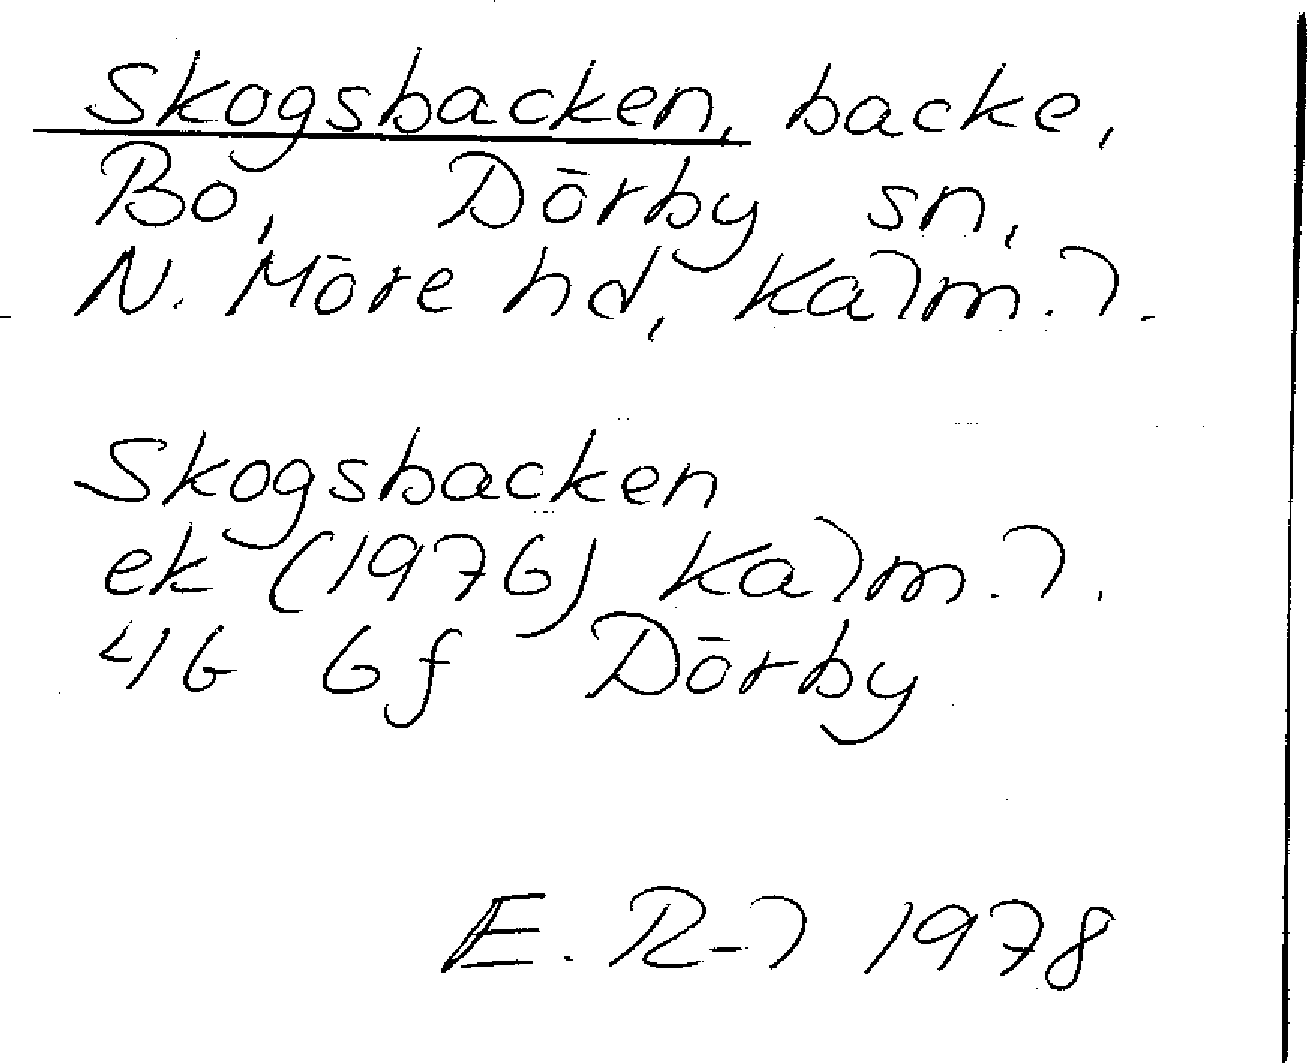 Skogsbacken, backe,
Bo, Dörby sn,
N. Möre hd, Kalm. l.
Skogsbacken
ek (1976) Kalm. l.
4G 6f Dörby
E. R-l 1978